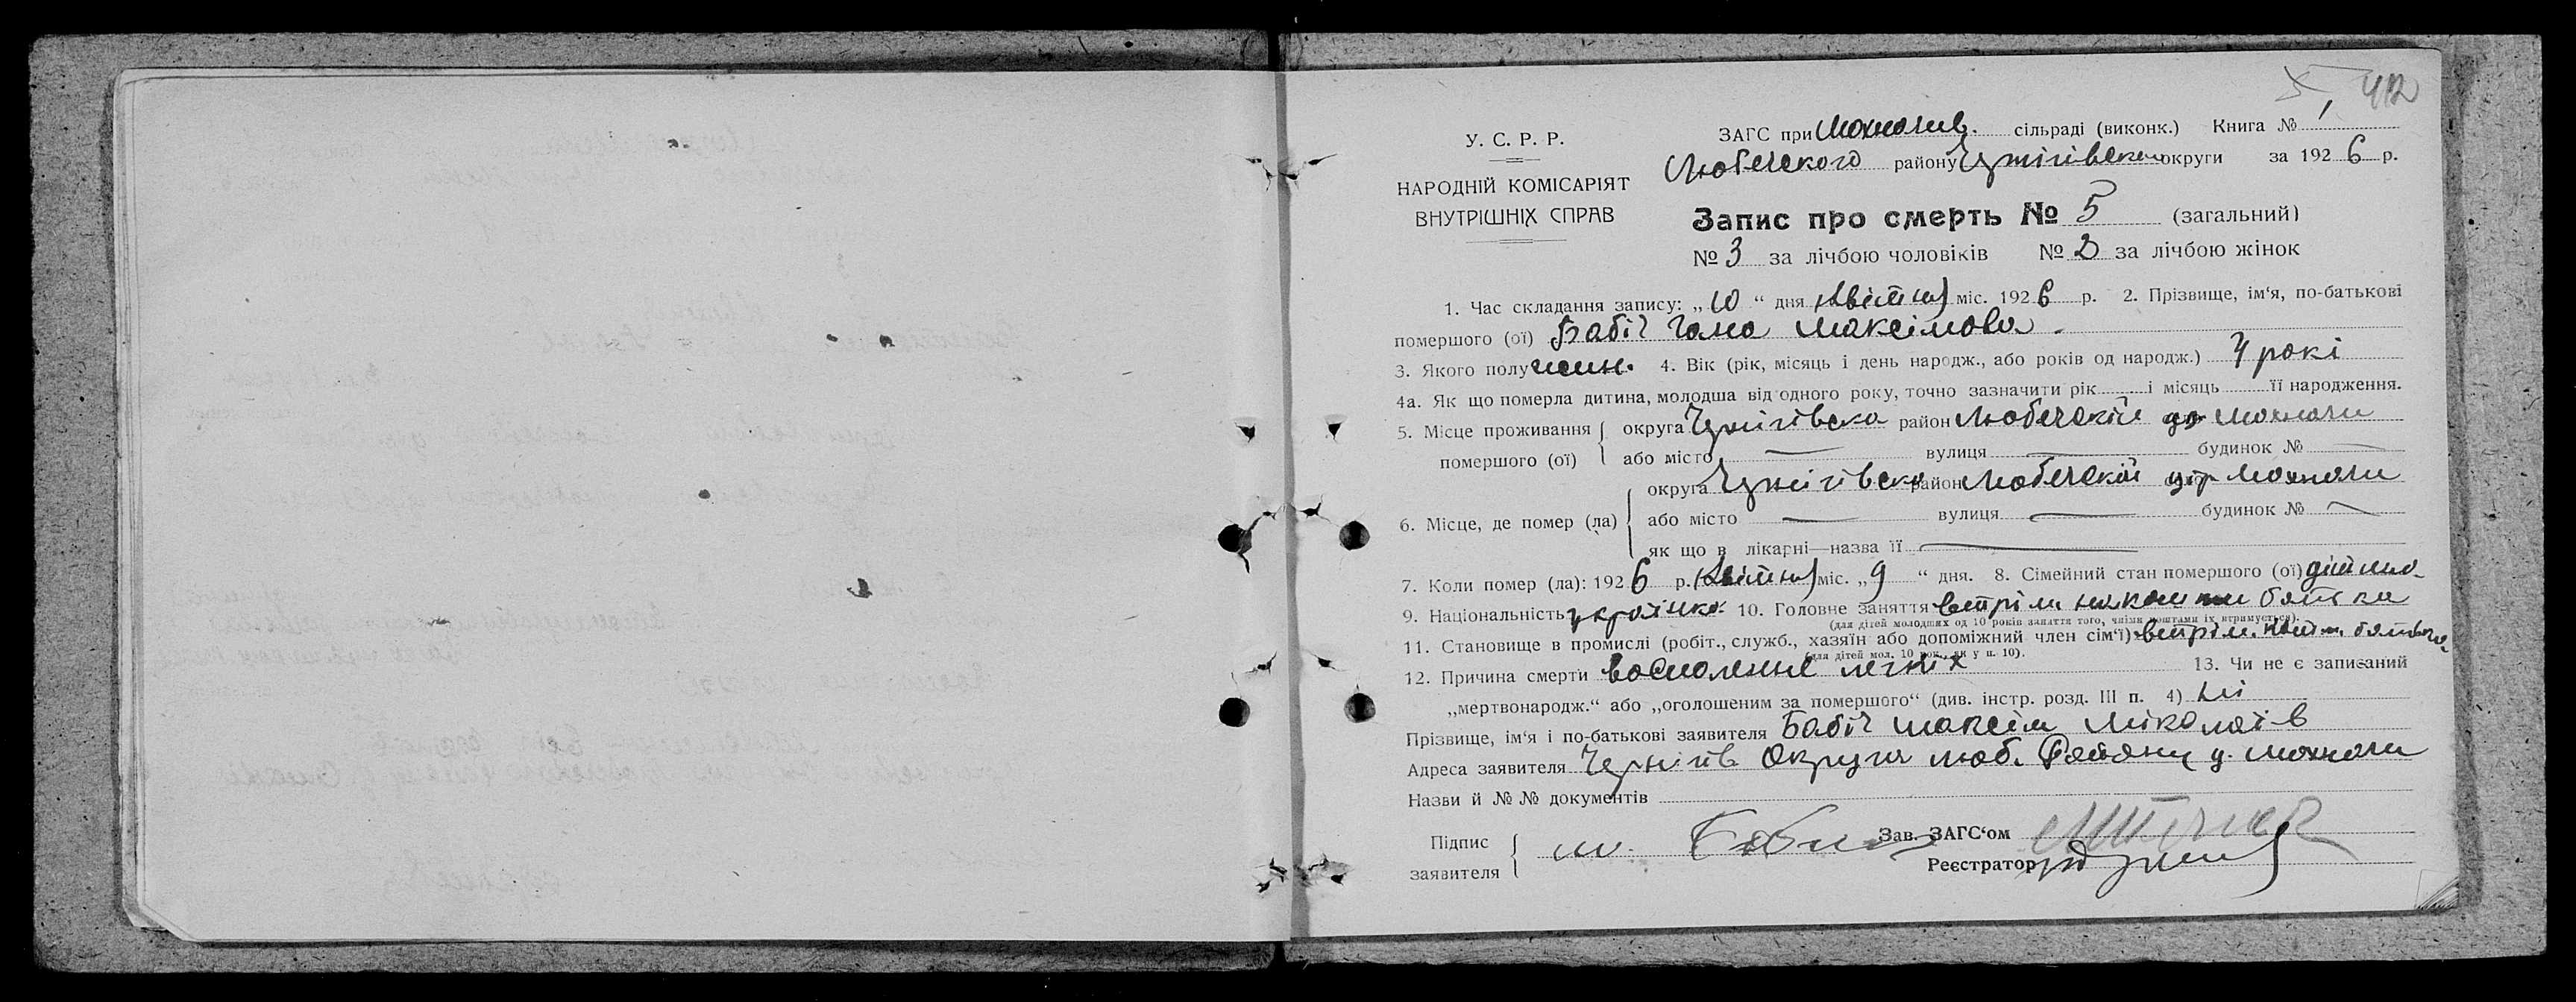 412
У. С. Р. Р.
НАРОДНІЙ КОМІСАРІЯТ
ВНУТРІШНІХ СПРАВ
ЗАГС при Мохначів. сільраді (виконк.) Книга № 1
Любечского району Чернігівской округи за 1926 р.
Запис про смерть № 5 (загальний)
№ 3 за лічбою чоловіків № 2 за лічбою жінок
1. Час складання запису: „10“ дня квітня міс. 1926 р. 2. Прізвище, ім‘я, по-батькові
помершого (ої) Бабіч Гана Максімова.
3. Якого полу жен. 4. Вік (рік, місяць і день народж., або років од народж.) 4 рокі
4а. Як що померла дитина, молодша від одного року, точно зазначити рік і місяць її народження.
5. Місце проживання помершого (ої)
округа Чернігівска район Любечскій Мохначи
або місто — вулиця — будинок № —
6. Місце, де помер (ла)
округа Чернігівска район Любечскій Мохначи
або місто — вулиця — будинок № —
як що в лікарні—назва її —
7. Коли помер (ла): 1926 р. квітня міс. „9“ дня. 8. Сімейний стан помершого (ої)
9. Національність українка 10. Головне заняття батька
(для дітей молодших од 10 років заняття того, чиїми коштами їх втримується).
11. Становище в промислі (робіт., служб., хазяїн або допоміжний член сім‘ї)
(для дітей мол. 10 рок., як у п. 10).
12. Причина смерти воспаленіє легкіх 13. Чи не є записаний
„мертвонародж.“ або „оголошеним за помершого“ (див. інстр. розд. III п. 4) ні
Прізвище, ім‘я і по-батькові заявителя Бабіч Максім Міколаів
Адреса заявителя Чернігів Округи Люб. Району Мохначи
Назви й № № документів
Підпис заявителя М. Бабич
Зав. ЗАГС‘ом
Реєстратор